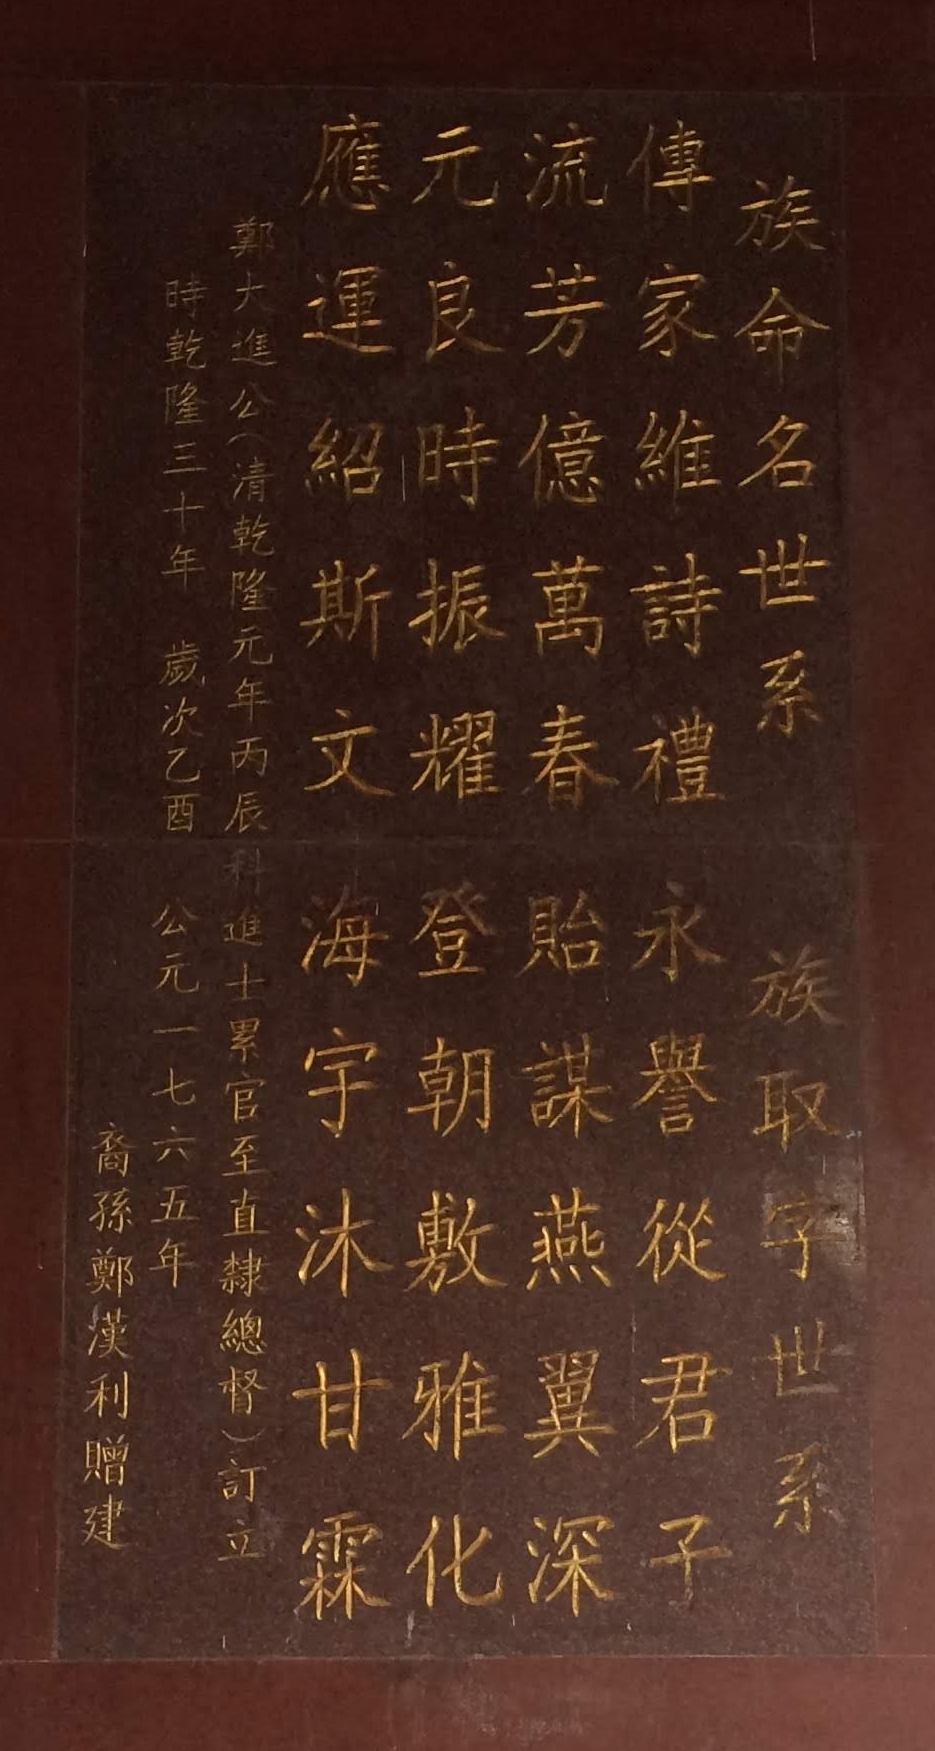 族命名世系
傳家維詩禮
流芳億萬春
元良時振耀
應運紹斯文
族取字世系
永譽從君子
貽謀燕翼深
登朝敷雅化
海宇沐甘霖
鄭大進公（清乾隆元年丙辰科進士累官至直隸總督）訂立
時乾隆三十年　歲次乙酉　公元一七六五年
裔孫鄭漢利贈建